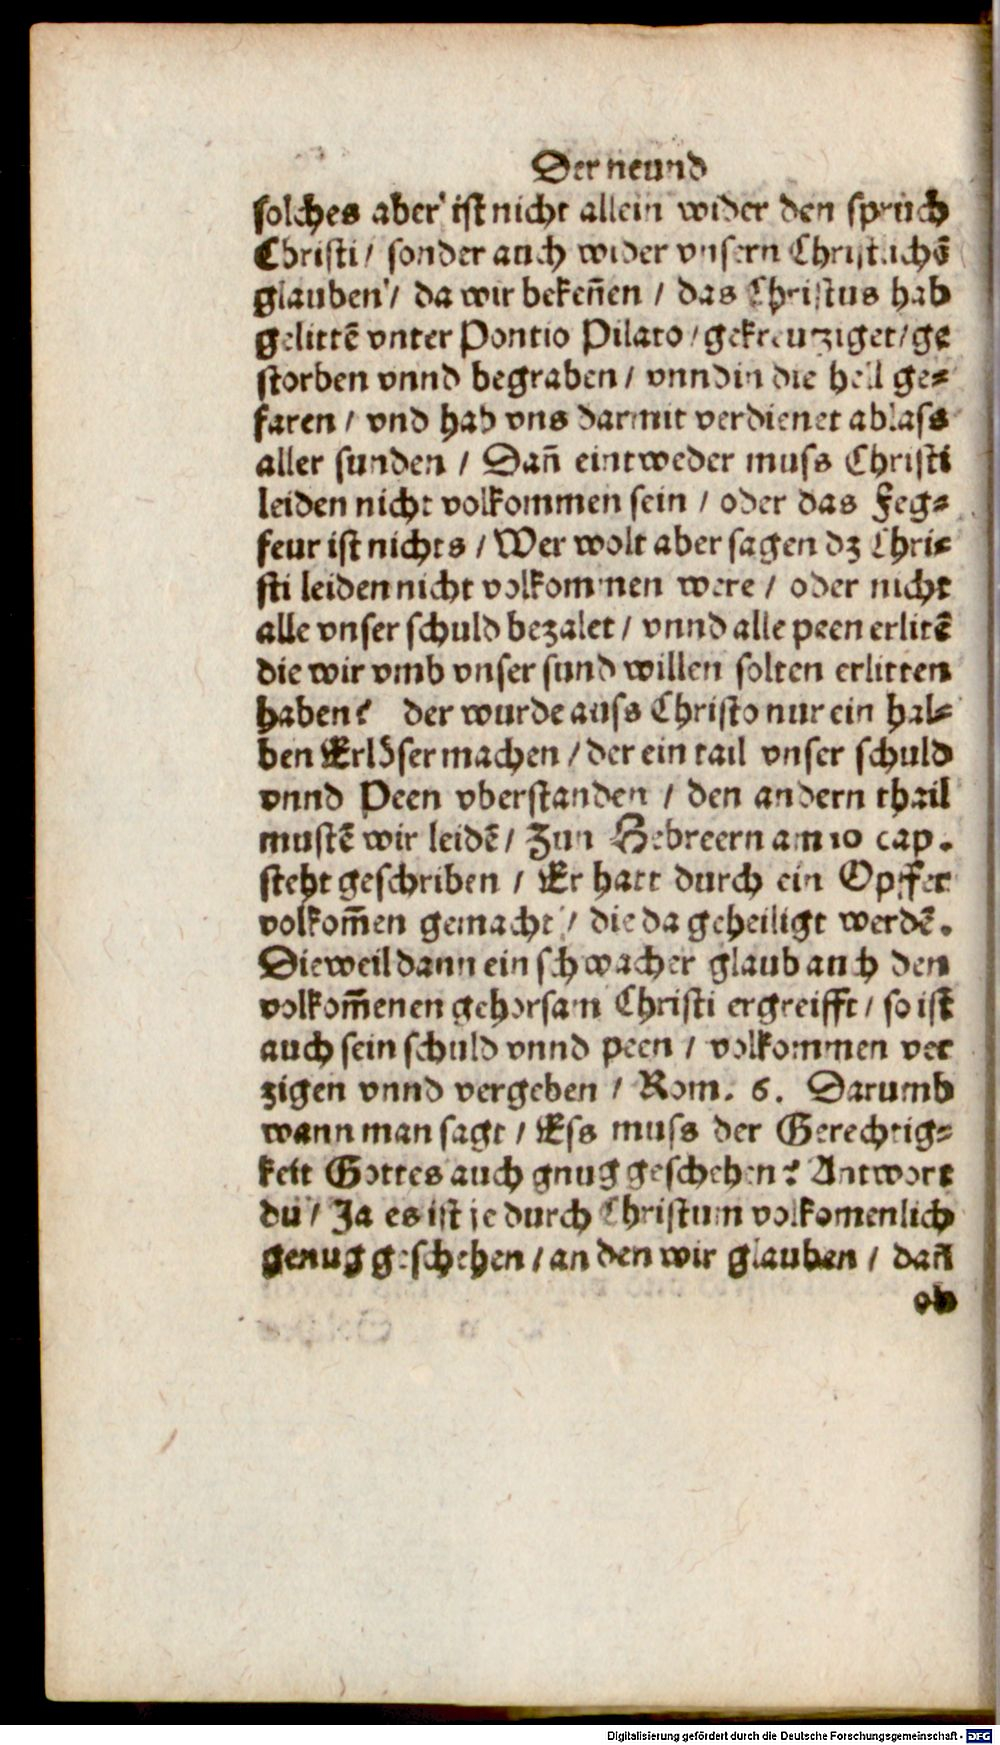 Der neund
solches aber ist nicht allein wider den spruch
Christi / sonder auch wider vnsern Christlichē
glauben / da wir bekeñen / das Christus hab
gelittē vnter Pontio Pilato / gekreutziget / ge
storben vnnd begraben / vnnd in die hell ge⸗
faren / vnd hab vns darmit verdienet ablass
aller sunden / Dañ eintweder muss Christi
leiden nicht volkommen sein / oder das Feg⸗
feur ist nichts / Wer wolt aber sagen dz Chri⸗
sti leiden nicht volkommen were / oder nicht
alle vnser schuld bezalet / vnnd alle peen erlitē
die wir vmb vnser sund willen solten erlitten
haben? der wurde auss Christo nur ein hal⸗
ben Erlöser machen / der ein tail vnser schuld
vnnd Peen vberstanden / den andern thail
mustē wir leidē / Zun Hebreern am 10 cap.
steht geschriben / Er hatt durch ein Opffer
volkom̄en gemacht / die da geheiligt werdē.
Dieweil dann ein schwacher glaub auch den
volkom̄enen gehorsam Christi ergreifft / so ist
auch sein schuld vnnd peen / volkommen ver
zigen vnnd vergeben / Rom. 6. Darumb
wann man sagt / Ess muss der Gerechtig⸗
keit Gottes auch gnug geschehen? Antwort
du / Ja es ist je durch Christum volkomenlich
genug geschehen / an den wir glauben / dañ
ob
Digitalisierung gefördert durch die Deutsche Forschungsgemeinschaft - DFG